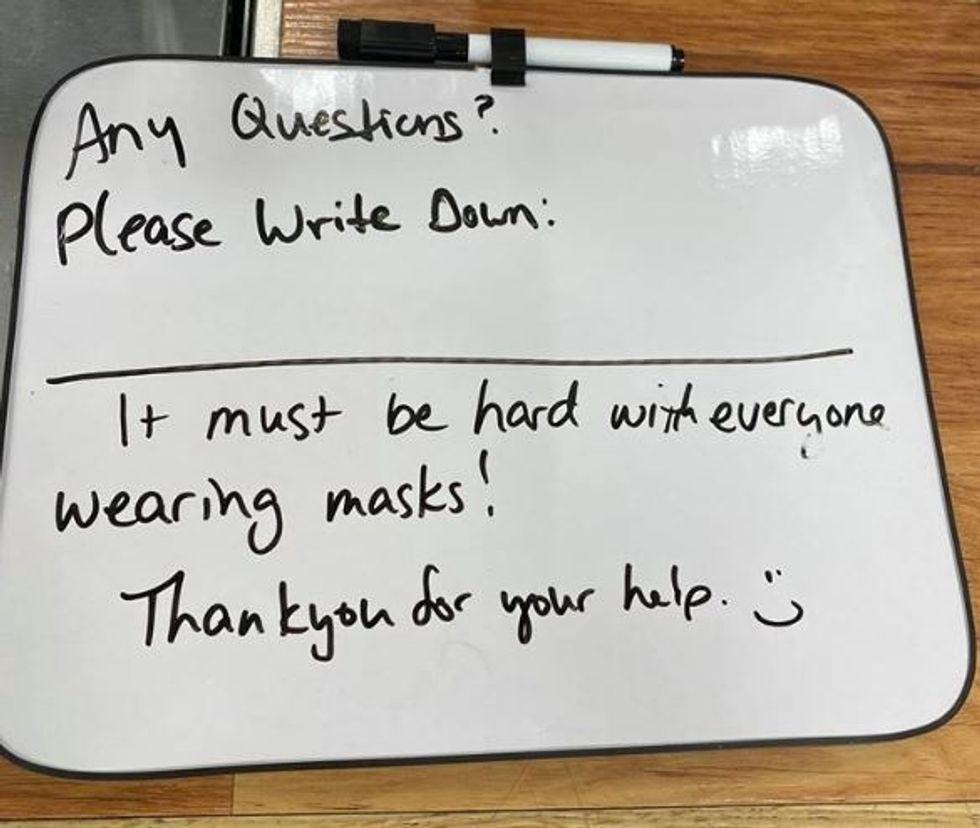 Any Questions?
Please Write Down:
It must be hard with everyone
wearing masks!
Thankyou for your help. :)